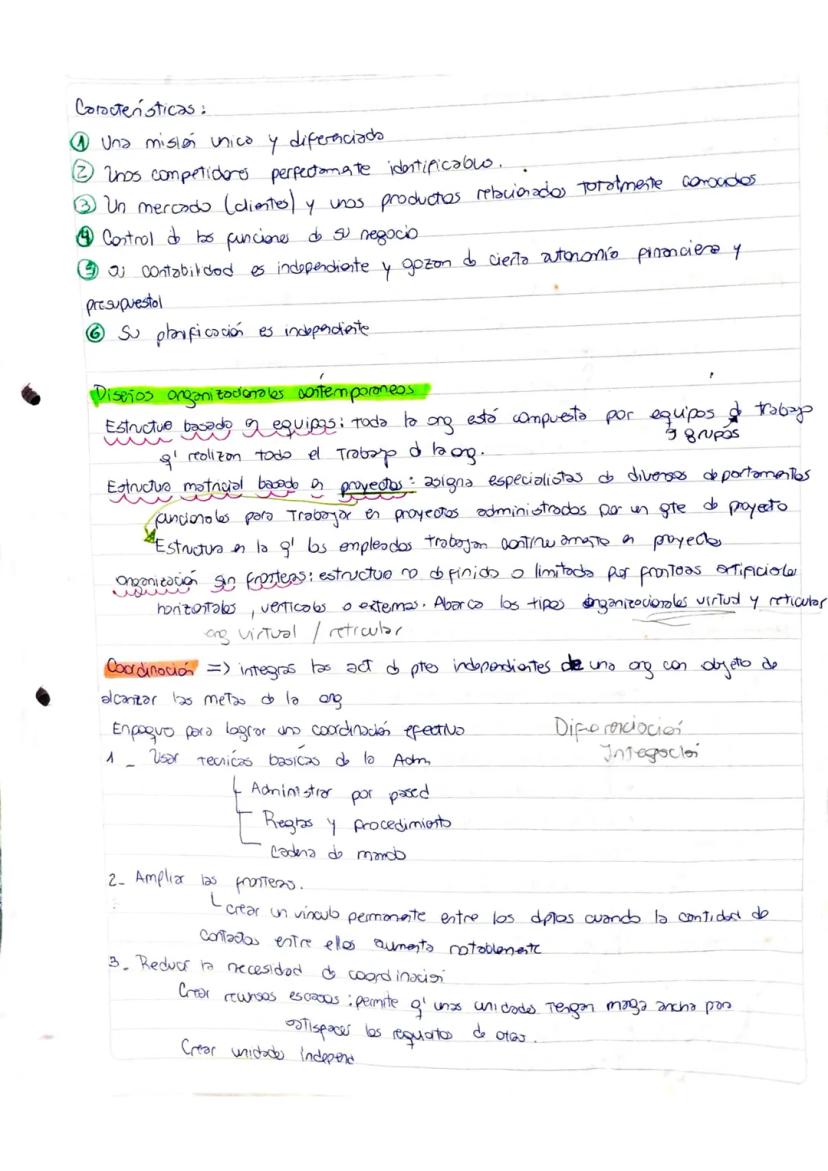 Características:
① Una misión unica y diferenciada
② Unos competidores perfectamente identificables.
③ Un mercado (clientes) y unos productos relacionados totalmente conocidos
④ Control d las funciones de su negocio
⑤ contabilidad es independiente y gozan d cierta autonomía financiera y
presupuestal
⑥ Su planificación es independiente
Diseños organizacionales contemporaneos
Estructura basada en equipos: toda la org está compuesta por equipos d trabajo
y grupos
q' realizan todo el trabajo d la org.
Estructura matricial basada en proyectos: asigna especialistas de diversos departamentos
funcionales para Trabajar en proyectos administrados por un gte de proyecto
Estructura en la q' los empleados trabajan continuamente en proyectos
Organización sin fronteras: estructura no definida o limitada por fronteras artificiales
horizontales, verticales o externas. Abarca los tipos organizacionales virtual y reticular
org virtual / reticular
Coordinación => integras las act d ptes independientes de una org con objeto de
alcanzar las metas de la org
Enfoque para lograr una coordinación efectiva
Diferenciación
Integración
1 _ Usar tecnicas basicas de la Adm
Administrar por
Reglas y procedimiento
Cadena de mando
2- Ampliar las fronteras.
crear un vinculo permanente entre los dptos cuando la cantidad de
contactos entre ellos aumenta notablemente
3- Reducir la necesidad d coordinación
Crear recursos escasos: permite q' unas unidades tengan manga ancha para
satisfacer los requisitos de otras.
Crear unidades independ